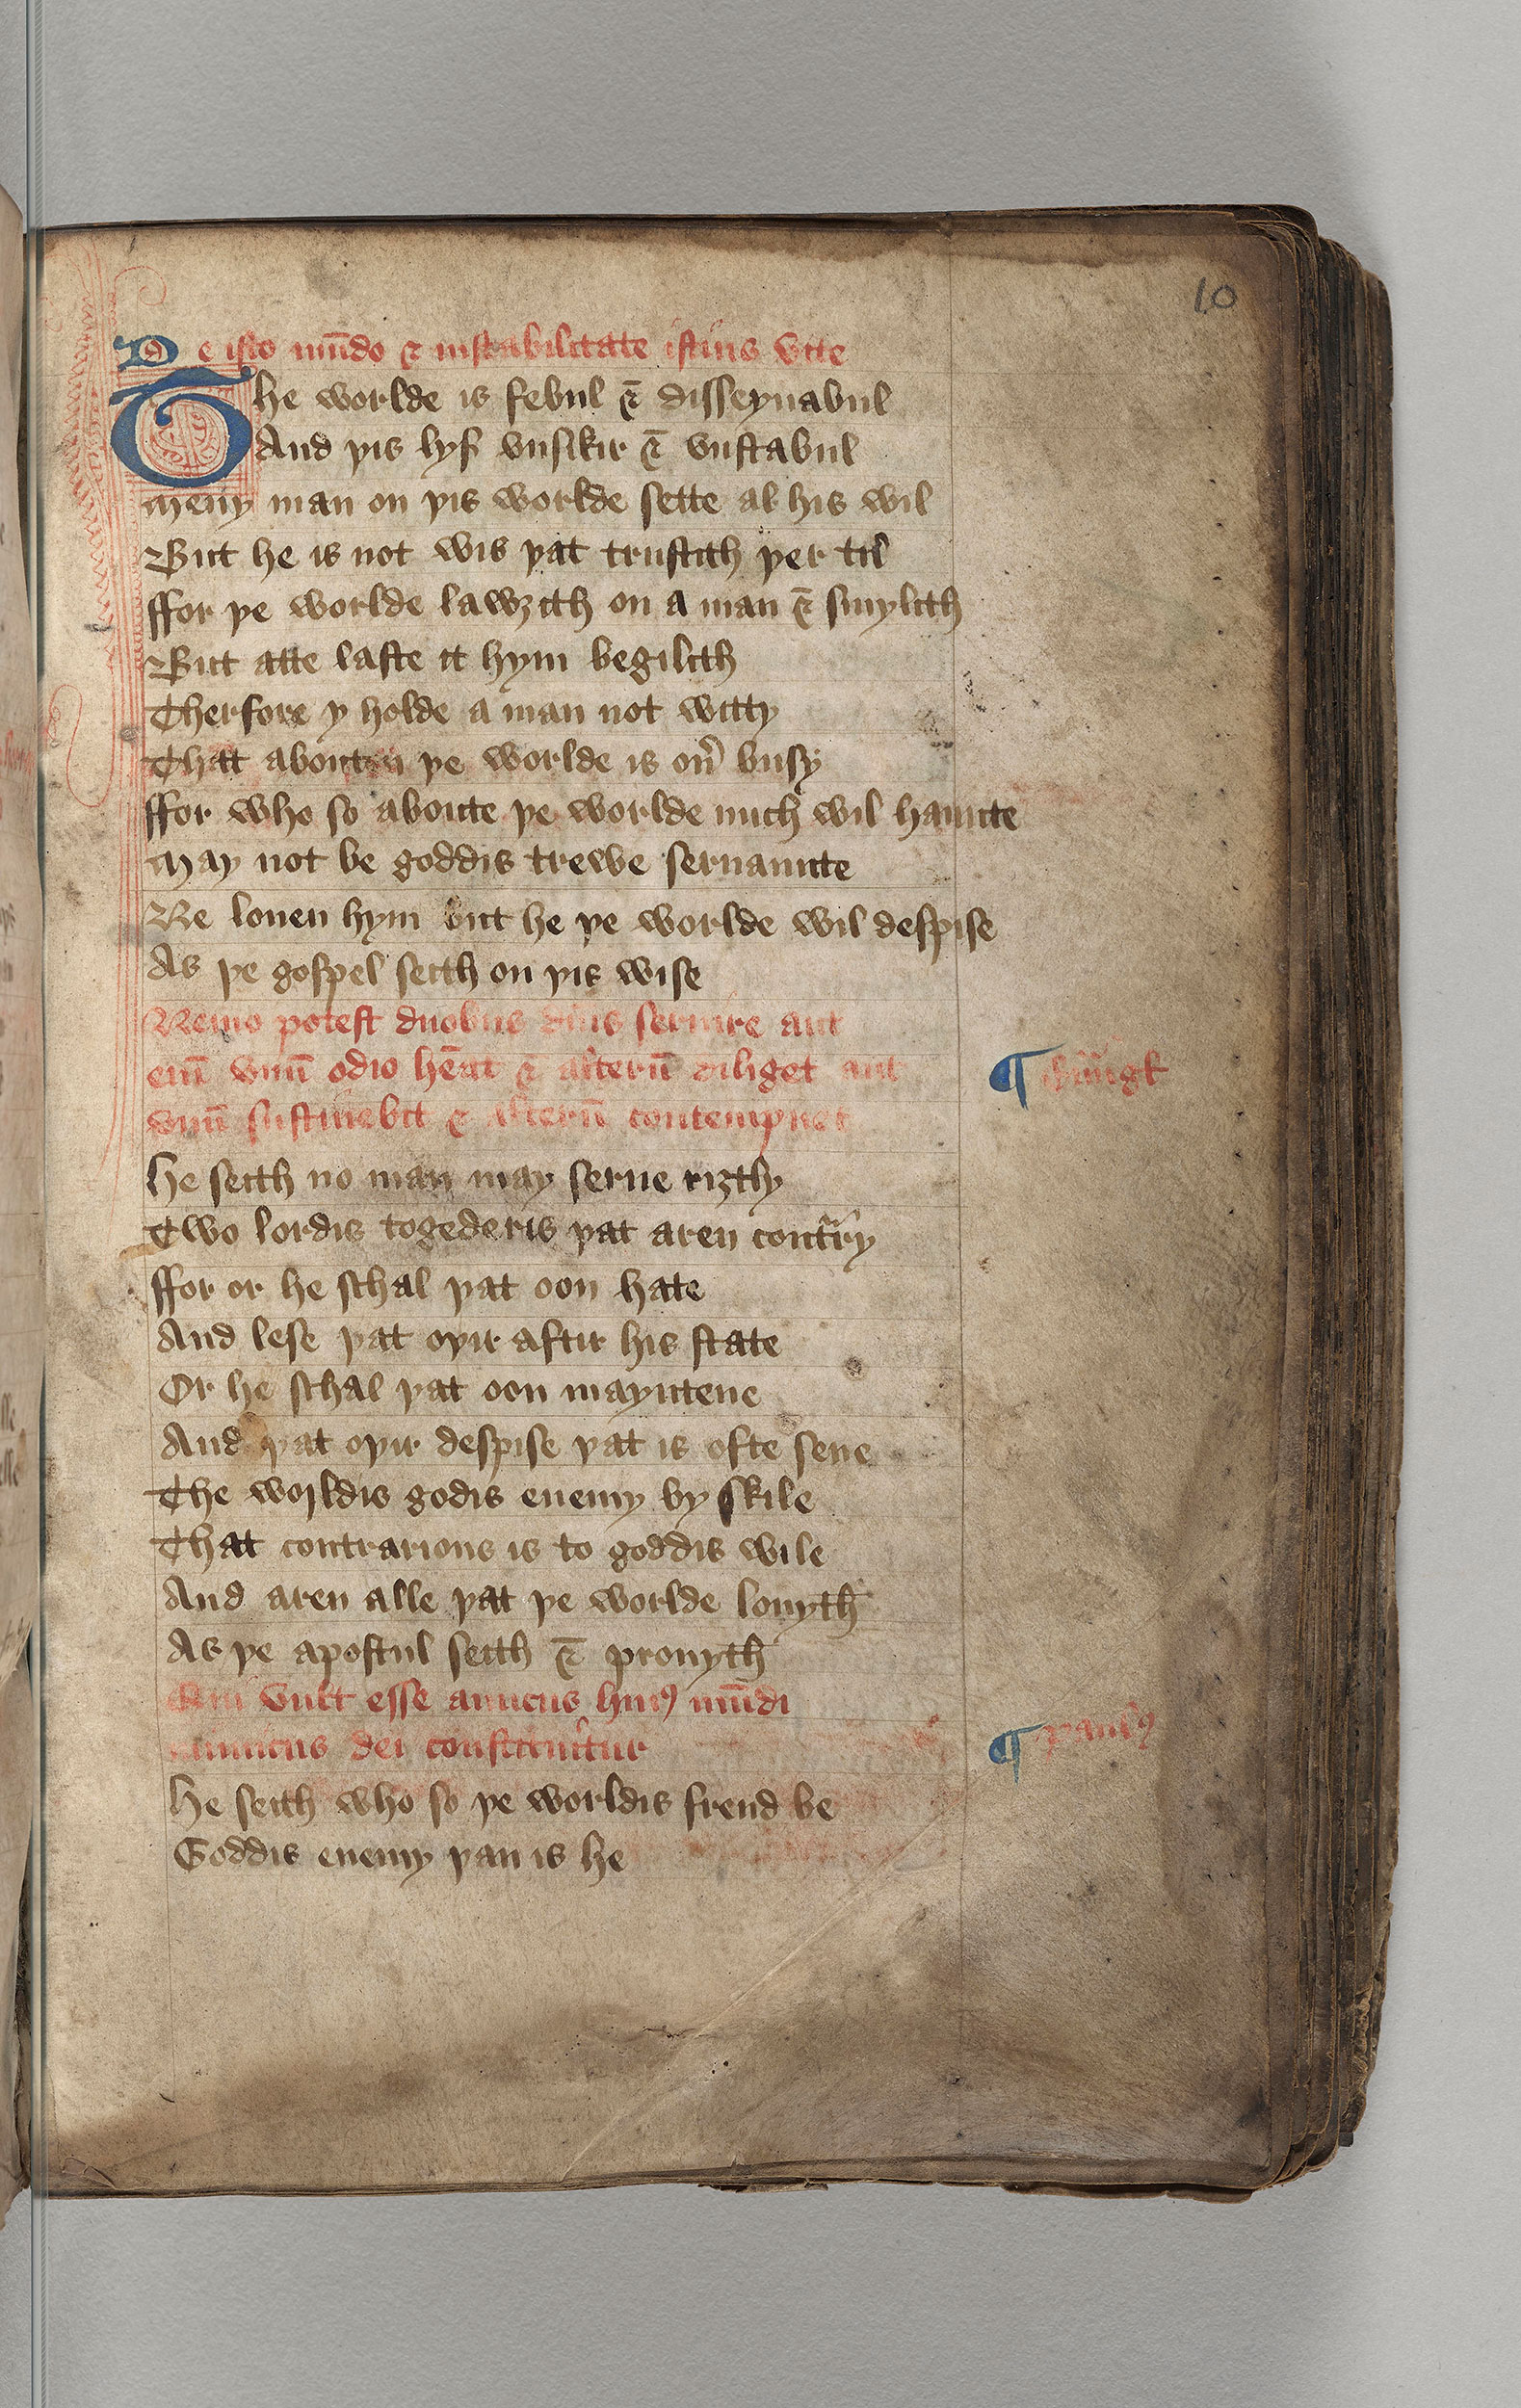 10
De isto mūdo ⁊ instabilitate istius vite
The worlde is febul ⁊ disseyuabul
And þis lyf vnsikir ⁊ vnstabul
meny man on þis worlde sette al his wil
But he is not wis þat trustith þer til
ffor þe worlde lawȝith on a man ⁊ smylith
But atte laste it hym begilith
Therfore y holde a man not witty
That abouten þe worlde is oủ busy
ffor who so aboute þe worlde mich wil haunte
may not be goddis trewe seruaunte
Ne louen hym but he þe worlde wil despise
As þe gospel seith on þis wise
Nemo potest duobus dñis seruire aut
enī vnū odio hēat ⁊ alterū diliget aut
vnū sustinebit ⁊ alterū contempnet
¶
He seith no man may serue riȝtly
Two lordis togederis þat aren contrary
ffor or he schal þat oon hate
And lese þat oþir aftir his state
Or he schal þat oon mayntene
And þat oþir despise þat is ofte sene
The worldis godis enemy by skile
That contrarious is to goddis wile
And aren alle þat þe worlde louyth
As þe apostul seith ⁊ prouyth
Qui vult esse amicus huiꝰ mūdi
inimicus dei constituitur
¶ paulꝰ
He seith who so þe worldis frend be
Goddis enemy þan is he